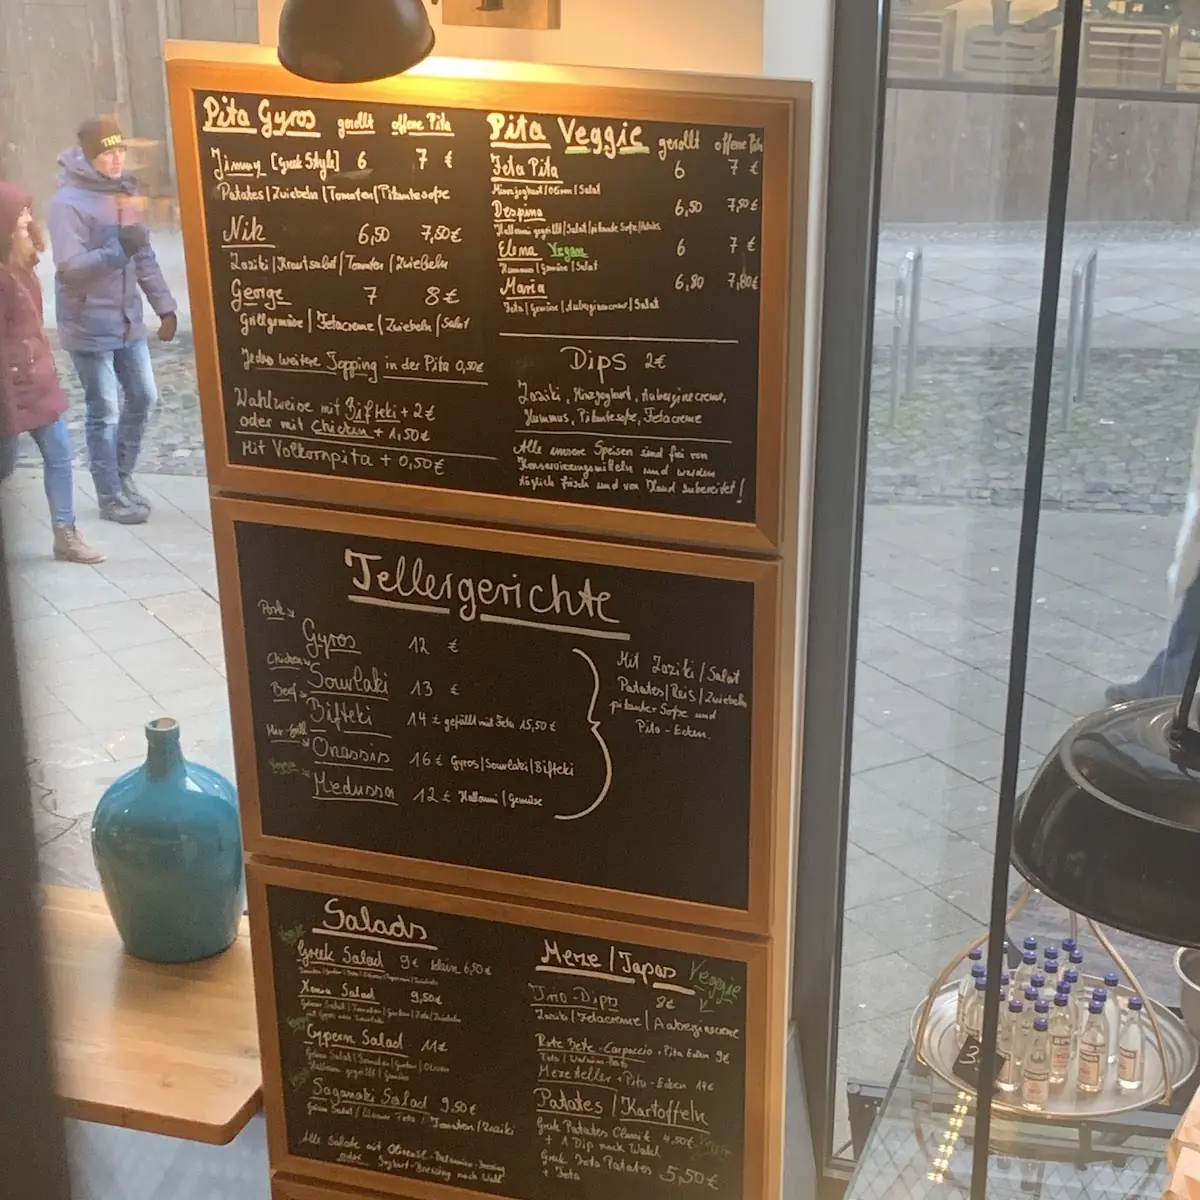 Pita Gyros gerollt offene Pita
Jimmy [Greek Style] 6 7 €
Patates/Zwiebeln/Tomaten/Pikantesoße
Nik 6,50 7,50€
Zaziki/Krautsalat/Tomaten/Zwiebeln
George 7 8€
Grillgemüse/Fetacreme/Zwiebeln/Salat
Jedes weitere Topping in der Pita 0,50€
Wahlweise mit Bifteki + 2€
oder mit Chicken + 1,50€
Mit Volkornpita + 0,50€
Pita Veggie gerollt offene Pita
Feta Pita 6 7 €
Minzjoghurt/Oliven/Salat
Despina 6,50 7,50€
Halloumi gegrillt/Salat/pikante Soße/Patates
Elena Vegan 6 7 €
Hummus/Gemüse/Salat
Maria 6,80 7,80€
Feta/Gemüse/Auberginencreme/Salat
Dips 2€
Zaziki, Minzjoghurt, Auberginecreme,
Hummus, Pikantesoße, Fetacreme
Alle unsere Speisen sind frei von
Konservierungsmitteln und werden
täglich frisch und von Hand zubereitet!
Tellergerichte
Pork Gyros 12 €
Chicken Souvlaki 13 €
Beef Bifteki 14 € gefüllt mit Feta 15,50€
Mix-Grill Onassis 16 € Gyros/Souvlaki/Bifteki
Veggie Medussa 12 € Halloumi/Gemüse
Mit Zaziki/Salat
Patates/Reis/Zwiebeln
pikanter Soße und
Pita-Ecken.
Salads
Greek Salad 9€ klein 6,50€
Xenia Salad 9,50€
Cypern Salad 11€
Grüner Salat/Tomaten/Gurken/Oliven
Halloumi gegrillt/Gemüse
Saganaki Salad 9,50€
Alle Salate mit Olivenöl-Balsamico-Dressing
oder Joghurt-Dressing nach Wahl
Meze/Tapas Veggie
Trio-Dips 8€
Zaziki/Fetacreme/Auberginecreme
Rote Bete-Carpaccio + Pita Ecken 9€
Mezeteller + Pita-Ecken 14€
Patates/Kartoffeln
Greek Patates Classik 4,50€
+ 1 Dip nach Wahl
Greek Feta Patates 5,50€
+ Feta
3